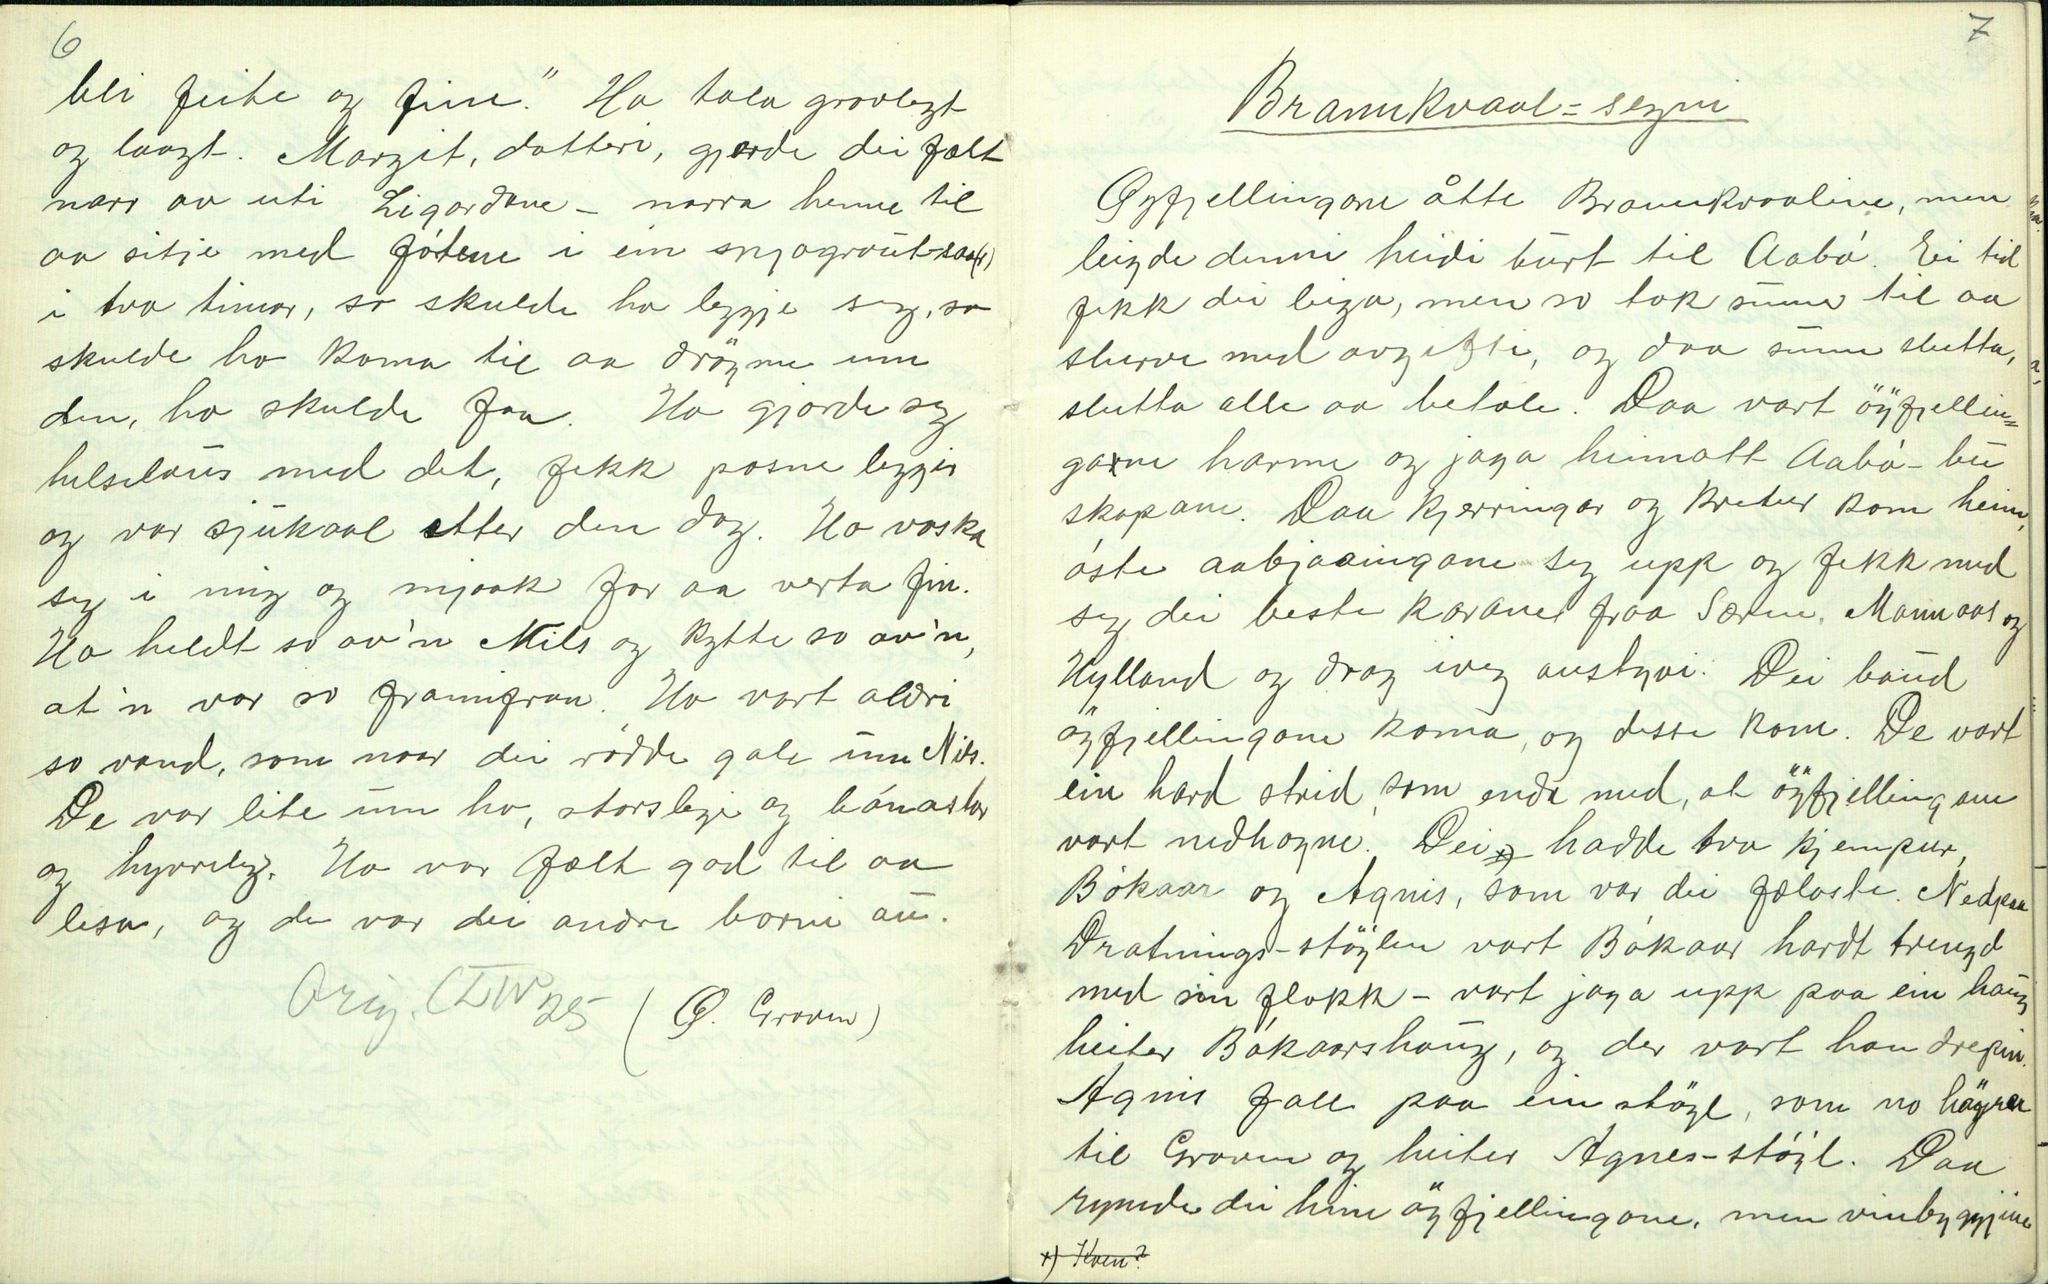 6
bli feite og fine." Ho tala grovlegt
og laagt. Margit, dotteri, gjorde dei fælt
narr av uti Ligardane - narra henne til
aa sitje med fótene i ein snjograut-saa(r)
i tvo timar, so skulde ho leggje seg, so
skulde ho koma til aa dröyme um
den, ho skulde faa. Ho gjorde seg
helselaus med det, fekk posne leggjir
og var sjukaal etter den dag. Ho vaska
seg i mig og mjaak for aa verta fin.
Ho heldt so av'n Nils og kytte so av'n,
at'n var so framifraa. Ho vart aldri
so vond, som naar dei rødde gale um Nils.
De var lite um ho, storslegi og bónastor
og hyvrileg. Ho var fælt god til aa
lesa, og de var dei andre borni au.
Orig. CIW 25 (Ø. Groven)
7
Brannkvaal=segni
Øyfjellingane åtte Brannkvaaline, men
leigde denni heidi burt til Aabó. Ei tid
fekk dei leiga, men so tok sume til aa
slurve med avgifti, og daa sume slutta,
slutta alle aa betale. Daa vart öyfjellin=
gane harme og jaga heimatt Aabó-bu
skapane. Daa kjerringar og kretur kom heim,
óste aabjøaingane seg upp og fekk med
seg dei beste karane fraa Særen, Mannaas og
Hylland og drog iveg austyvi. Dei baud
öyfjellingane koma, og desse kom. De vart
ein hard strid, som enda med, at öyfjellingane
vart nedhogne. Dei x) hadde tvo kjempur,
Bókaar og Agnis, som var dei fælaste. Nedpaa
Dratnings-stöylen vart Bókaar hardt trengd
med sin flokk - vart jaga upp paa ein haug
heiter Bókaarshaug, og der vart han drepin.
Agnis fall paa ein stöyl, som no höyrer
til Groven og heiter Agnes-stöyl. Daa
rymde dei hine öyfjellingane, men vinbyggjine
x) Kven?